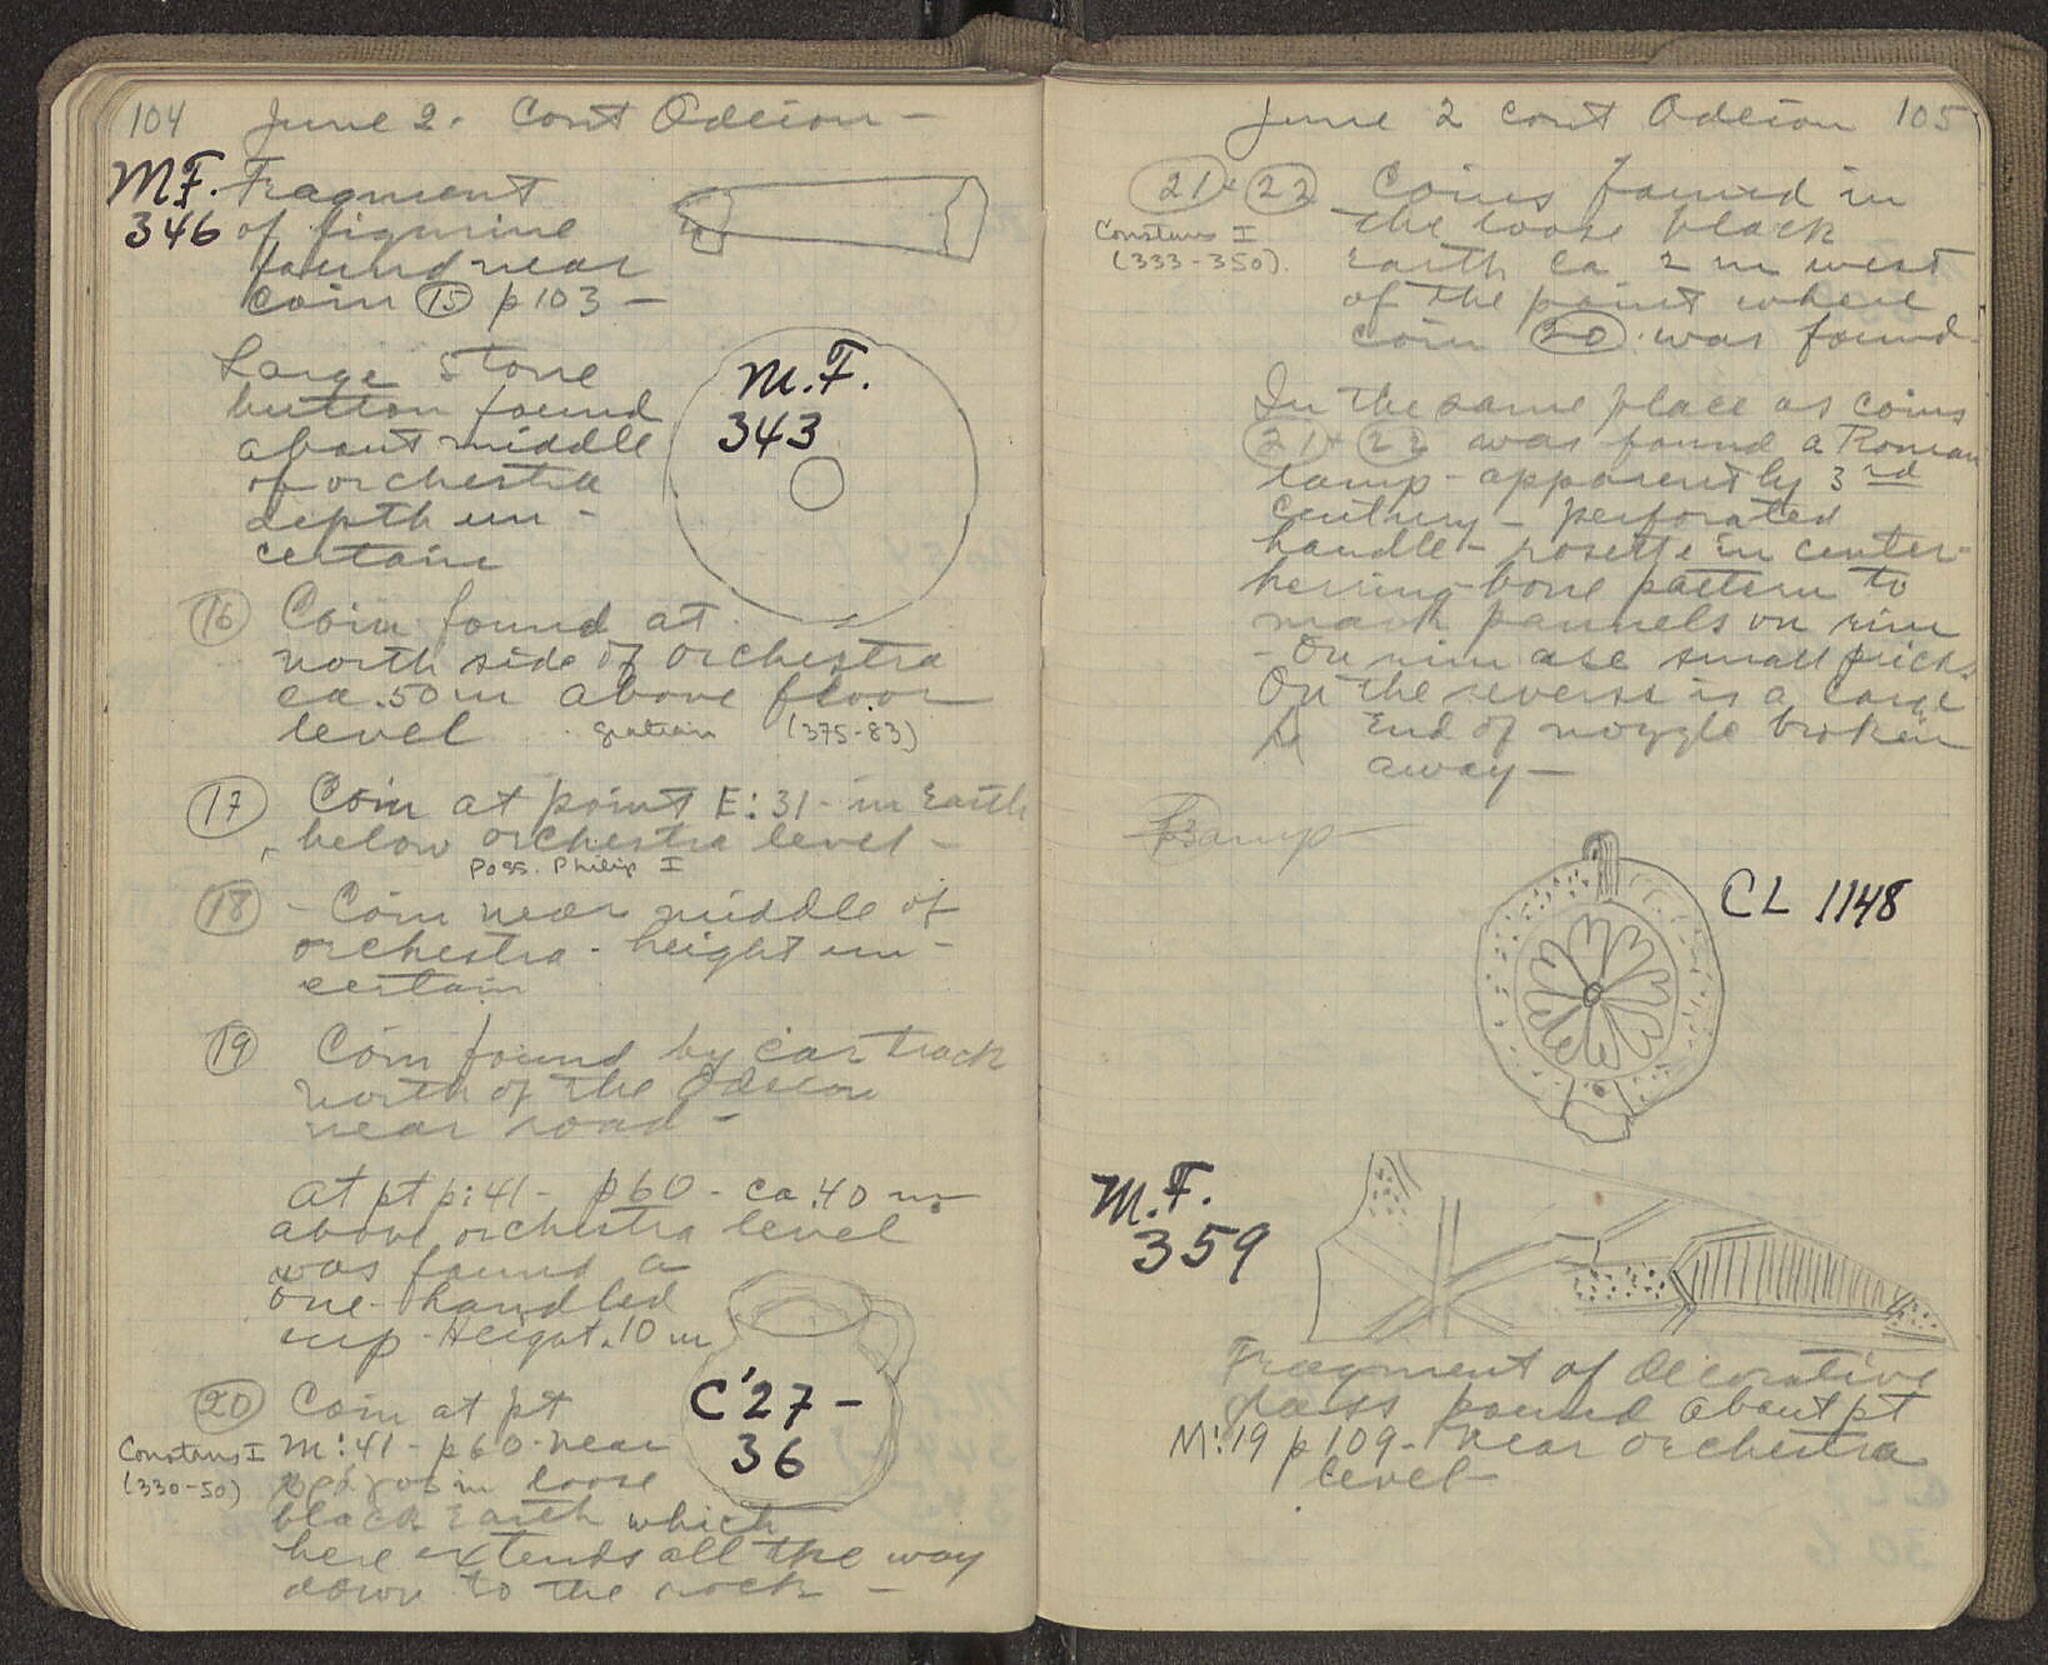 104 June 2. Cont Odeion —
M.F. 346
Fragment
of figurine
found near
coin 15 p 103 —
Large stone
button found
about middle
of orchestra
depth un-
certain
M.F.
343
16 Coin found at
north side of orchestra
ca .50 m above floor
level Gratian (375-83)
17 Coin at point E:31 - in Earth
below orchestra level -
Poss. Philip I
18 - Coin near middle of
orchestra - height un-
certain
19 Coin found by car track
north of the Odeion
near road -
At pt p:41 - p60 - ca .40 m
above orchestra level
was found a
one-handled
cup - Height .10 m
C'27 -
36
20 Coin at pt
M:41 - p60 - near
in loose
black Earth which
here extends all the way
down to the rock —
Constans I
(330-50)
June 2 cont Odeion 105
21 + 22 Coins found in
the loose black
Earth ca 2 m west
of the point where
coin 20 was found.
Constans I
(333-350).
In the same place as coins
21 + 22 was found a Roman
lamp - apparently 3rd
Century - perforated
handle - rosette in center -
herring-bone pattern to
mark pannels on rim
- On rim are small pricks
On the reverse is a large
End of nozzle broken
away —
Lamp
CL 1148
M.F.
359
Fragment of decorative
glass found about pt
M:19 p 109 - Near orchestra
level -